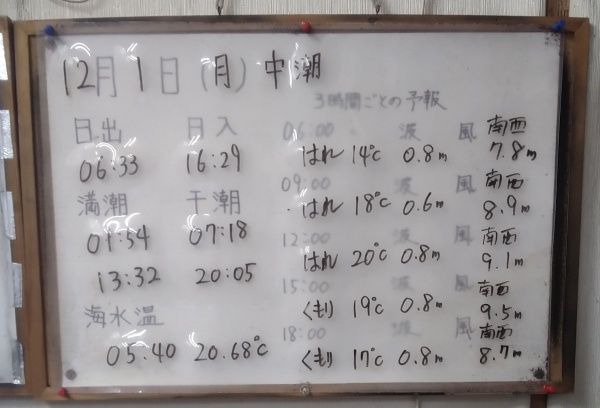 12月1日(月)中潮
日出 日入
06:33 16:29
満潮 干潮
01:54 07:18
13:32 20:05
海水温
05:40 20.68℃
3時間ごとの予報
06:00 波 風 南西
はれ 14℃ 0.8m 7.8m
09:00 波 風 南西
はれ 18℃ 0.6m 8.9m
12:00 波 風 南西
はれ 20℃ 0.8m 9.1m
15:00 波 風 南西
くもり 19℃ 0.8m 9.5m
18:00 波 風 南西
くもり 17℃ 0.8m 8.7m